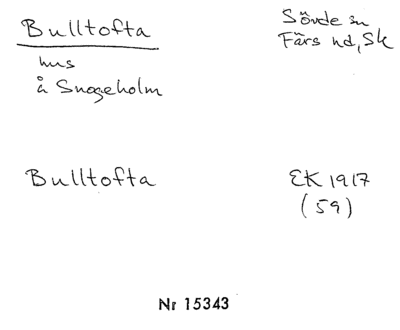 Bulltofta
hus
å Snogeholm
Sövde sn
Färs hd, Sk
Bulltofta
EK 1917
(59)
Nr 15343